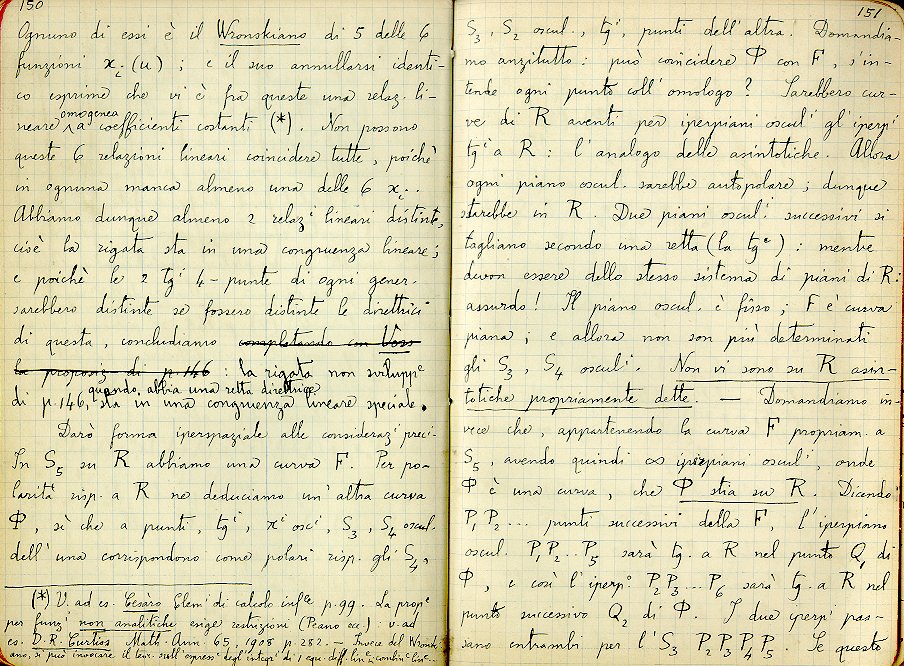 150
Ognuno di essi è il Wronskiano di 5 delle 6
funzioni x_i(u) ; e il suo annullarsi identi-
co esprime che vi è fra queste una relaz. li-
neare omogenea a coefficienti costanti (*). Non possono
queste 6 relazioni lineari coincidere tutte, poichè
in ognuna manca almeno una delle 6 x_i.
Abbiamo dunque almeno 2 relaz.i lineari distinte,
cioè la rigata sta in una congruenza lineare;
e poichè le 2 tg.i 4-punte di ogni gener.
sarebbero distinte se fossero distinte le direttrici
di questa, concludiamo completando con Voss
la proposiz. di p. 146 : la rigata non svilupp.e
di p. 146, quando abbia una retta direttrice, sta in una congruenza lineare speciale.
Darò forma iperspaziale alle consideraz.i preci-
In S_5 su R abbiamo una curva F. Per po-
larità risp. a R ne deduciamo un'altra curva
Φ, sì che a punti, tg.i, π.i osc.i, S_3, S_4 oscul.
dell'una corrispondono come polari risp. gli S_4,
(*) V. ad es. Cesàro Elem.i di calcolo inf.le p. 99. La prop.e
per funz.i non analitiche esige restrizioni (Peano ecc.) : v. ad
es. D. R. Curtiss Math. Ann. 65, 1908 p. 282. — Invece del Wronsk-
iano, si può invocare il teor. sull'espress. degli integr.i di 1 equ. diff. lin.e
151
S_3, S_2 oscul., tg.i, punti dell'altra. Domandia-
mo anzitutto: può coincidere Φ con F, s'in-
tende ogni punto coll'omologo? Sarebbero cur-
ve di R aventi per iperpiani oscul.i gl'iperp.i
tg.i a R : l'analogo delle asintotiche. Allora
ogni piano oscul. sarebbe autopolare ; dunque
starebbe in R. Due piani oscul.i successivi si
tagliano secondo una retta (la tg.e) : mentre
devon essere dello stesso sistema di piani di R :
assurdo! Il piano oscul. è fisso ; F è curva
piana ; e allora non son più determinati
gli S_3, S_4 oscul.i. Non vi sono su R asin-
totiche propriamente dette. — Domandiamo in-
vece che, appartenendo la curva F propriam. a
S_5, avendo quindi ∞ iperpiani oscul.i, onde
Φ è una curva, che Φ stia su R. Dicendo
P_1 P_2 ... punti successivi della F, l'iperpiano
oscul. P_1 P_2 .. P_5 sarà tg. a R nel punto Q_1 di
Φ, e così l'iperp.o P_2 P_3 ... P_6 sarà tg. a R nel
punto successivo Q_2 di Φ. I due iperp.i pas-
sano entrambi per l'S_3 P_2 P_3 P_4 P_5. Se questo